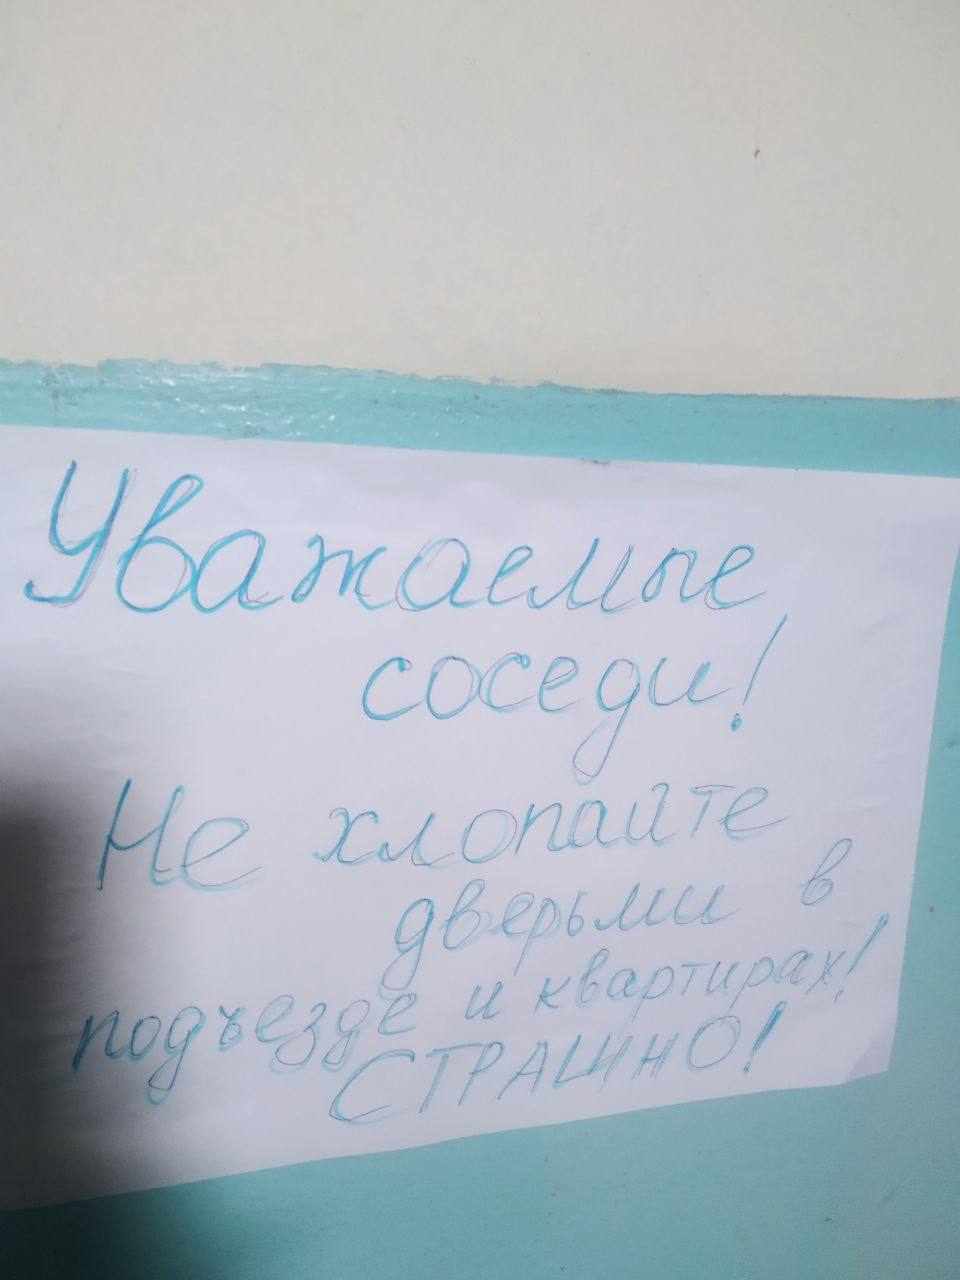 Уважаемые
соседи!
Не хлопайте
дверьми в
подъезде и квартирах!
СТРАШНО!